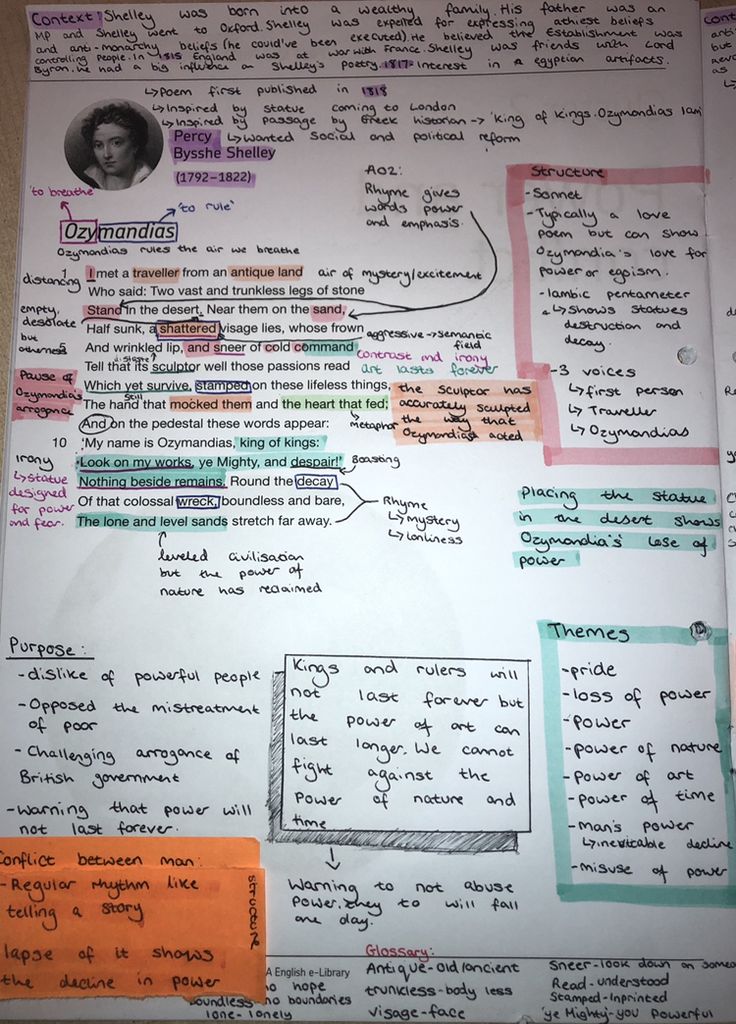 Context: Shelley was born into a wealthy family. His father was an
MP and Shelley went to Oxford. Shelley was expelled for expressing athiest beliefs
and anti-monarchy beliefs (he could've been executed). He believed the Establishment was
controlling people. In 1815 England was at war with France. Shelley was friends with Lord
Byron. He had a big influence on Shelley's poetry. 1817- Interest in egyptian artifacts.
↳Poem first published in 1818
↳Inspired by statue coming to London
↳Inspired by passage by Greek historian → 'King of Kings. Ozymandias I am
↳Wanted social and political reform
Percy
Bysshe Shelley
(1792–1822)
'to breathe'
'to rule'
Ozymandias
Ozymandias rules the air we breathe
AO2:
Rhyme gives
words power
and emphasis.
distancing
1 I met a traveller from an antique land
air of mystery/excitement
Who said: Two vast and trunkless legs of stone
Stand in the desert. Near them on the sand,
empty,
desolate
but
otherness
Half sunk, a shattered visage lies, whose frown
aggressive → semantic
field
5 And wrinkled lip, and sneer of cold command
contrast and irony
Tell that its sculptor well those passions read
art lasts forever
Which yet survive, stamped on these lifeless things,
still
The hand that mocked them and the heart that fed;
metaphor
the sculptor has
accurately sculpted
the way that
Ozymandias acted
Pause of
Ozymandias
arrogance
And on the pedestal these words appear:
10 'My name is Ozymandias, king of kings:
Look on my works, ye Mighty, and despair!'
Boasting
Nothing beside remains. Round the decay
Of that colossal wreck, boundless and bare,
The lone and level sands stretch far away.
Irony
↳statue
designed
for power
and fear.
Rhyme
↳mystery
↳lonliness
leveled civilisation
but the power of
nature has reclaimed
Structure
-Sonnet
-Typically a love
poem but can show
Ozymandia's love for
power or egoism.
-Iambic pentameter
↳Shows statues
destruction and
decay.
-3 voices
↳first person
↳Traveller
↳Ozymandias
Placing the statue
in the desert shows
Ozymandia's lose of
power
Purpose:
-dislike of powerful people
-Opposed the mistreatment
of poor
-Challenging arrogance of
British government
-Warning that power will
not last forever.
Kings and rulers will
not last forever but
the power of art can
last longer. We cannot
fight against the
power of nature and
time
Warning to not abuse
power. They to will fall
one day.
Themes
-pride
-loss of power
-power
-power of nature
-power of art
-power of time
-man's power
↳inevitable decline
-misuse of power
Conflict between man:
-Regular rhythm like
telling a story
lapse of it shows
the decline in power
structure
A English e-Library
Glossary:
no hope
boundless-no boundaries
lone-lonely
Antique-old/ancient
trunkless-body less
visage-face
Sneer-look down on someo
Read-understood
Stamped-Inprinted
'ye Mighty'-you powerful